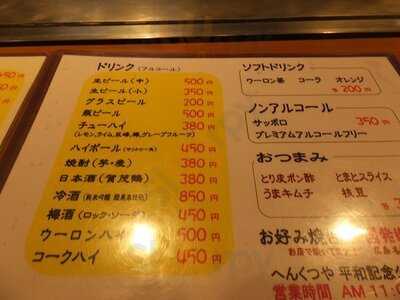 450円
380円
ドリンク（アルコール）
生ビール（中） 500円
生ビール（小） 350円
グラスビール 200円
瓶ビール 500円
チューハイ 380円
（レモン、ライム、巨峰、梅、グレープフルーツ）
ハイボール 450円
焼酎（芋・麦） 380円
日本酒（賀茂鶴） 380円
冷酒 850円
梅酒（ロック・ソーダ） 450円
ウーロンハイ 500円
コークハイ 450円
ソフトドリンク
ウーロン茶 コーラ オレンジ
各200円
ノンアルコール
サッポロ 350円
プレミアムアルコールフリー
おつまみ
とり皮ポン酢 とまとスライス
うまキムチ 枝豆
お好み焼
へんくつや 平和記念公
営業時間 AM 11:0